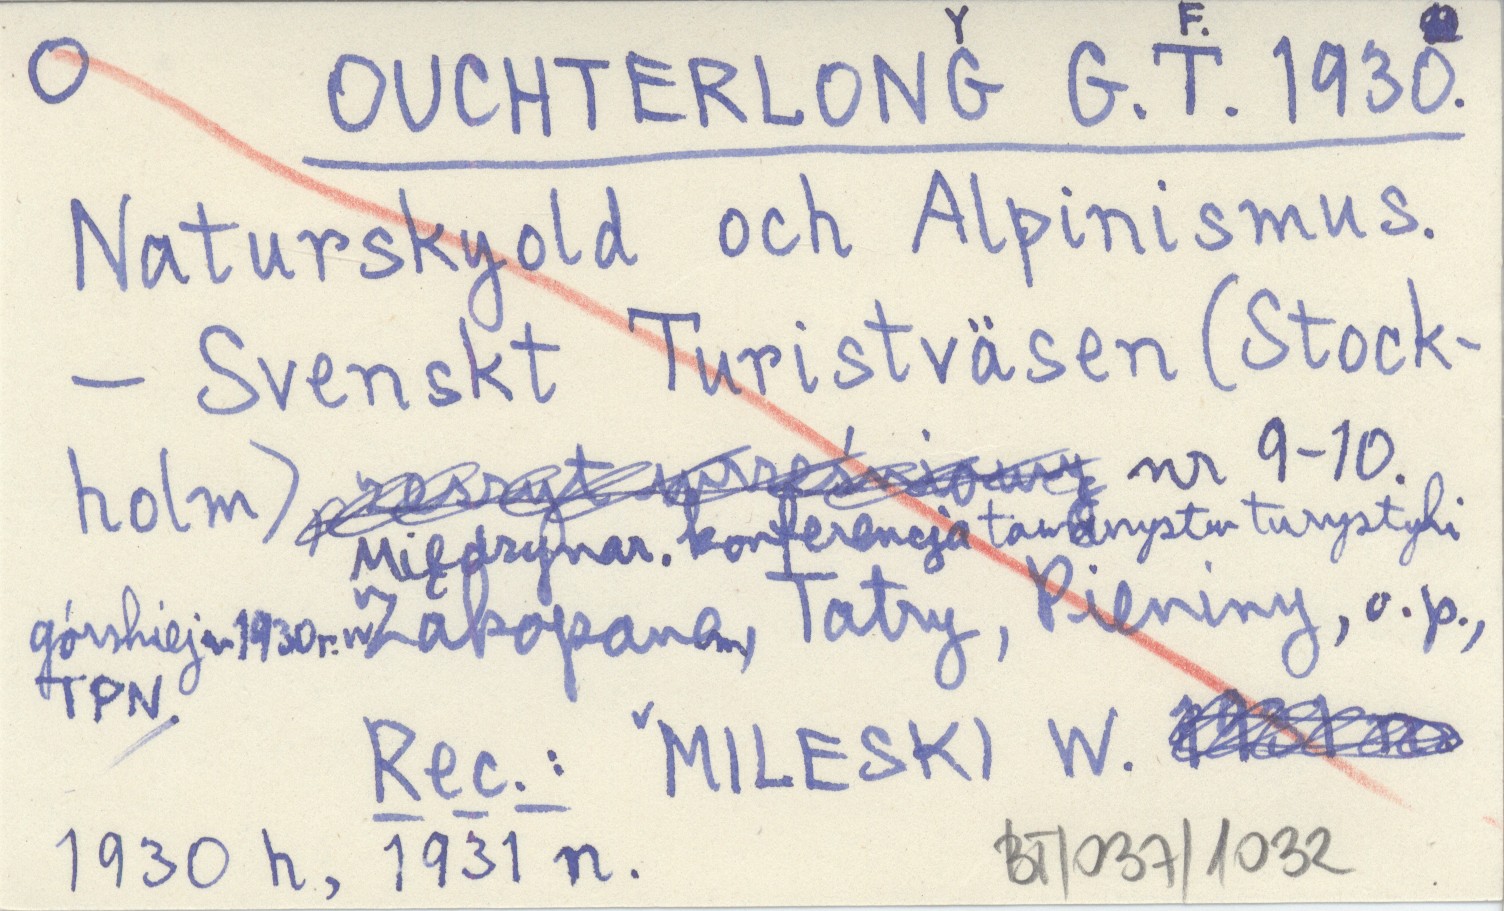 Y F.
O OUCHTERLONG G.T. 1930.
Naturskyold och Alpinismus.
— Svenskt Turistväsen (Stock-
holm) zeszyt wrześniowy nr 9-10.
Międzynar. konferencja turystyki
górskiej w 1930 r. w Zakopanem, Tatry, Pieniny, o.p.,
TPN.
Rec.: MILESKI W.
1930 h, 1931 n.
BT/037/1032